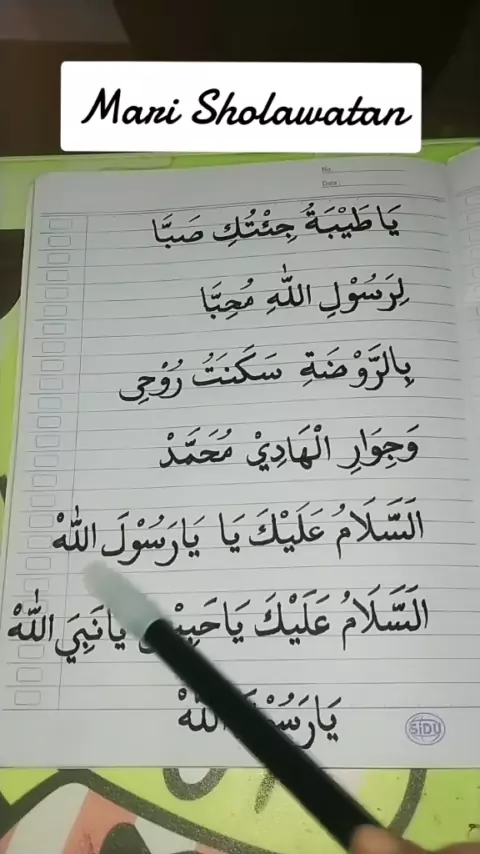 Mari Sholawatan
No.
Date :
يَا طَيْبَةُ جِئْتُكِ صَبَّا
لِرَسُوْلِ اللّٰهِ مُحِبَّا
بِالرَّوْضَةِ سَكَنَتْ رُوْحِى
وَجِوَارِ الْهَادِيْ مُحَمَّدْ
اَلسَّلَامُ عَلَيْكَ يَا يَارَسُوْلَ اللّٰهْ
اَلسَّلَامُ عَلَيْكَ يَا يَانَبِيَ اللّٰهْ
اللّٰهْ
SiDU